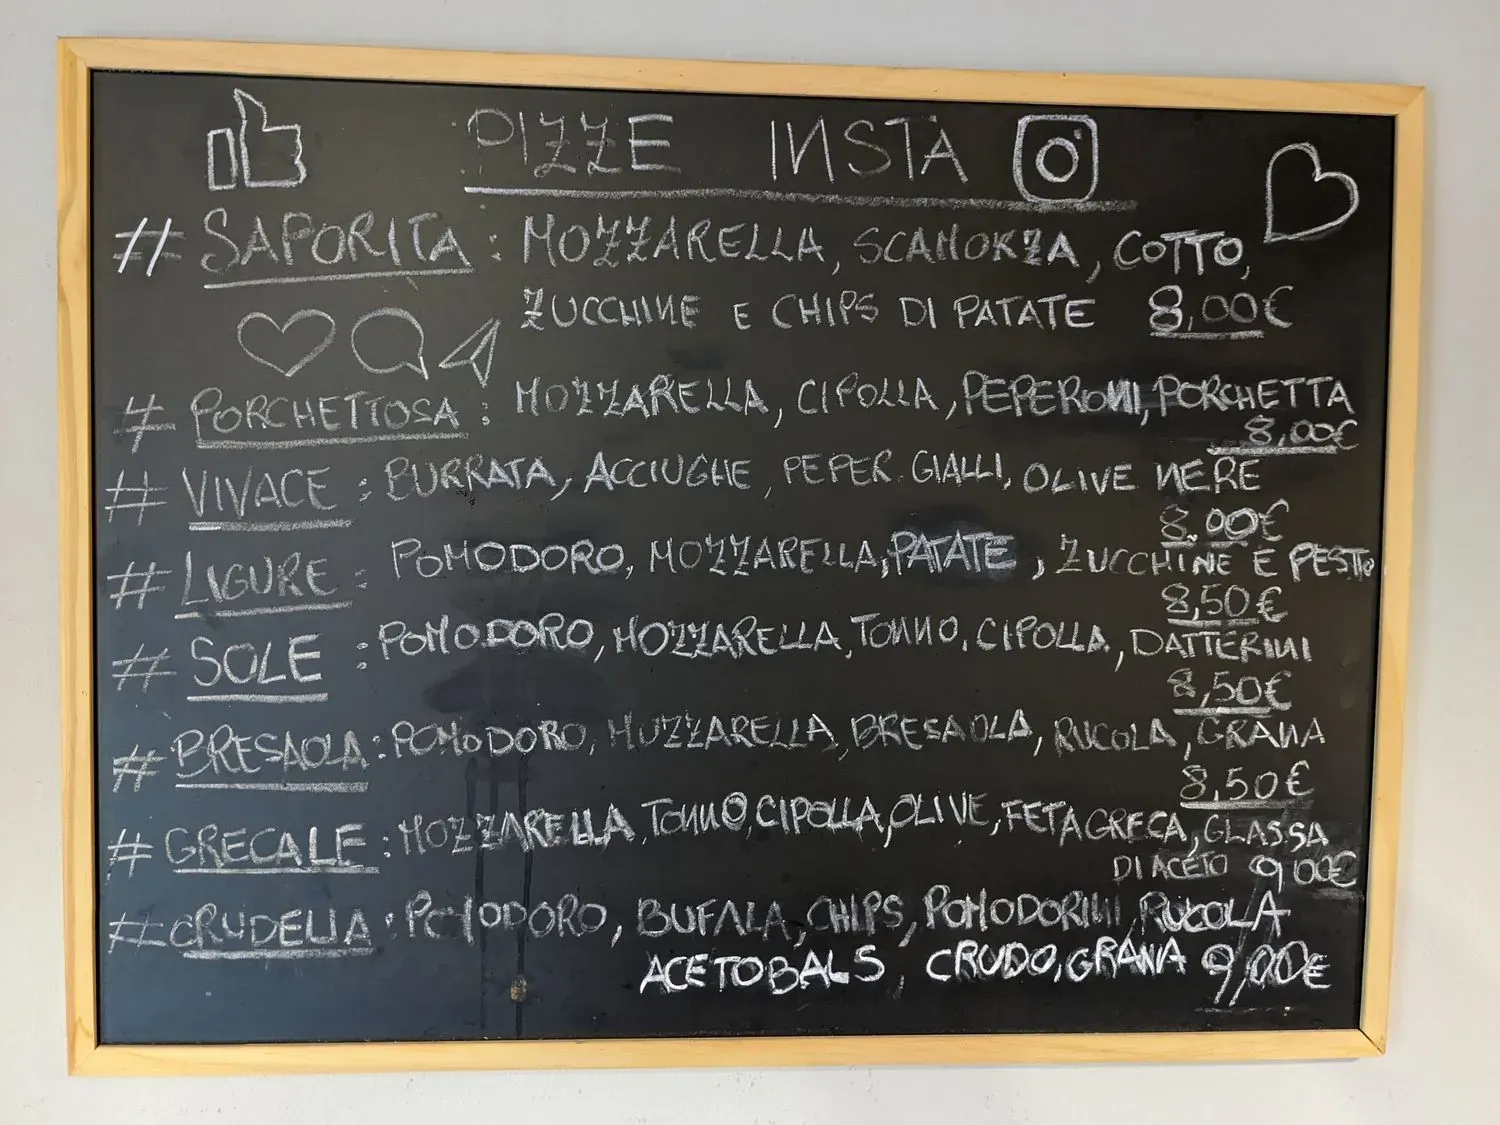 PIZZE INSTA
# SAPORITA : MOZZARELLA, SCAMORZA, COTTO,
ZUCCHINE E CHIPS DI PATATE 8,00€
# PORCHETTOSA : MOZZARELLA, CIPOLLA, PEPERONI, PORCHETTA
8,00€
# VIVACE : BURRATA, ACCIUGHE, PEPER. GIALLI, OLIVE NERE
8.00€
# LIGURE : POMODORO, MOZZARELLA, PATATE, ZUCCHINE E PESTO
8,50€
# SOLE : POMODORO, MOZZARELLA, TONNO, CIPOLLA, DATTERINI
8,50€
# BRESAOLA : POMODORO, MOZZARELLA, BRESAOLA, RUCOLA, GRANA
8,50€
# GRECALE : MOZZARELLA, TONNO, CIPOLLA, OLIVE, FETA GRECA, GLASSA
DI ACETO 9,00€
# CRUDELIA : POMODORO, BUFALA, CHIPS, POMODORINI, RUCOLA
ACETO BALS, CRUDO, GRANA 9,00€